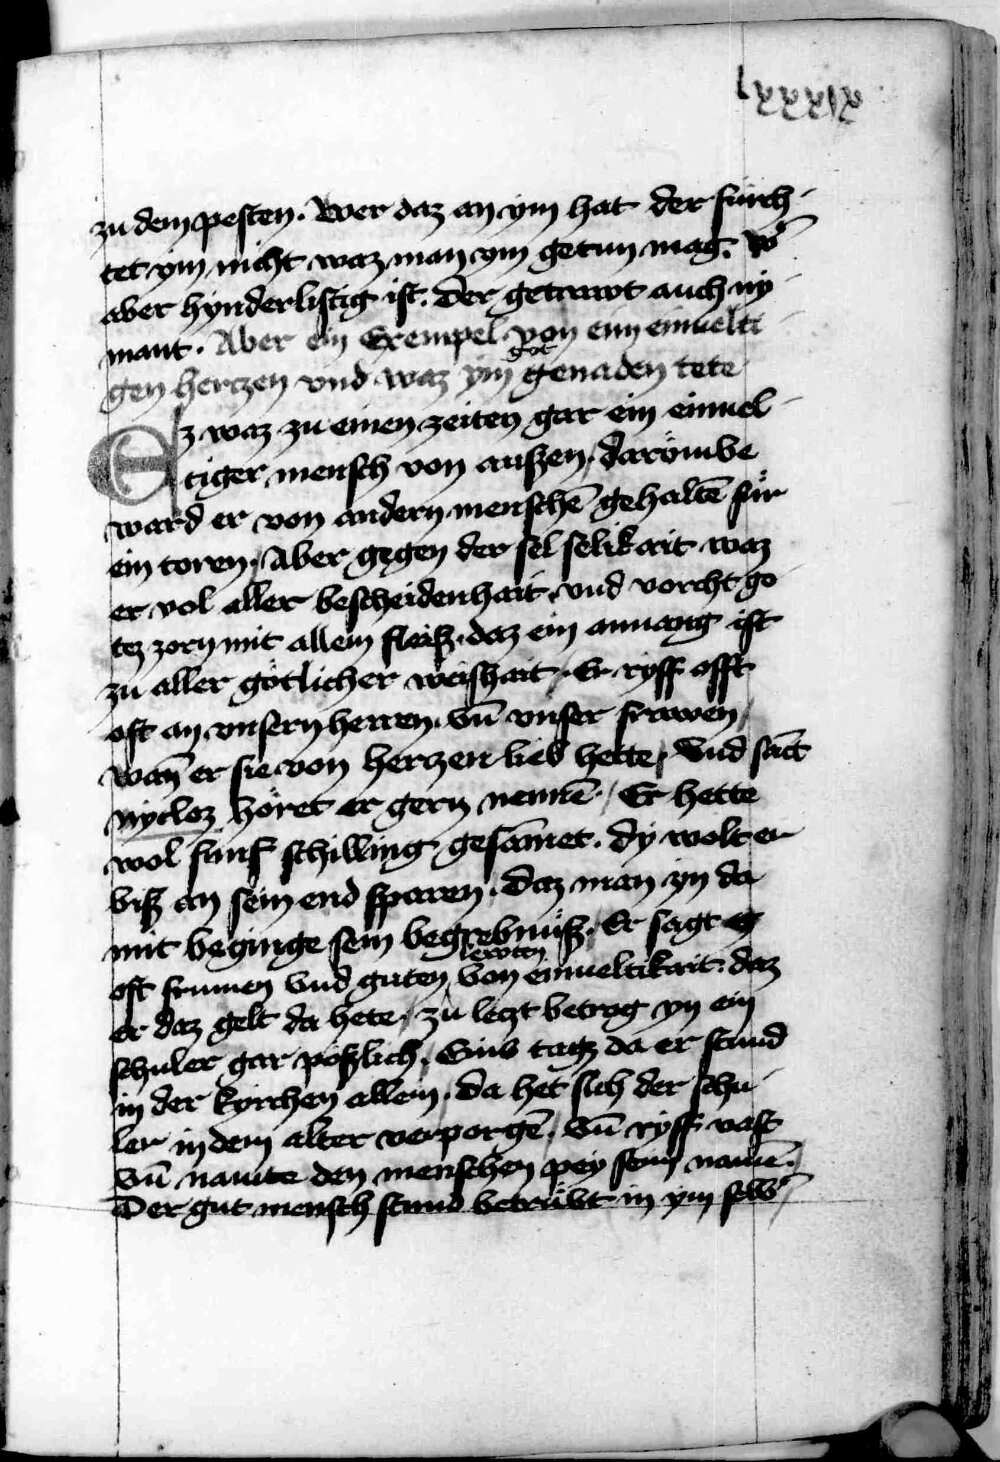 lxxxix
zu dem pesten. Wer daz an ym hat der fürch-
tet ym nicht waz man ym getun mag. Wͤ
aber hynderlistig ist. der getrawt auch ny-
mant. Aber ein Exempel von eim einuelti-
gen hertzen vnd waz ym got genaden tete
Ez waz zu einen zeiten gar ein einuel-
tiger mensch von außen, darümbe
ward er von andern menschē gehaltē für
ein toren, Aber gegen der sel selikait waz
er vol aller bescheidenhait, vnd vorcht go-
tez zorn mit allem fleiß. daz ein anuang ist
zu aller götlicher weishait. Er ryff offt
oft an vnsern herren. vn̄ vnser frawen,
wan̄ er sie von hertzen lieb hette, Vnd sāct
nycloz höret er gern nennē, Er hette
wol fünf schilling gesāmet. dy wolt er
biß an sein end sparen. Daz man yn da
mit beginge sein begrebnüß. Er sagt ez
oft frumen vnd guten lewten von einueltikait. daz
er daz gelt da hete, zu letzt betrog yn ein
schuler gar pößlich. Eins tagz da er stund
in der kyrchen allein. da het sich der schu-
ler in dem alter verporgē. vn̄ ryff vast
vn̄ nante den menschen pey seim namē.
Der gut mensch stund betrübt in ym selbͤ